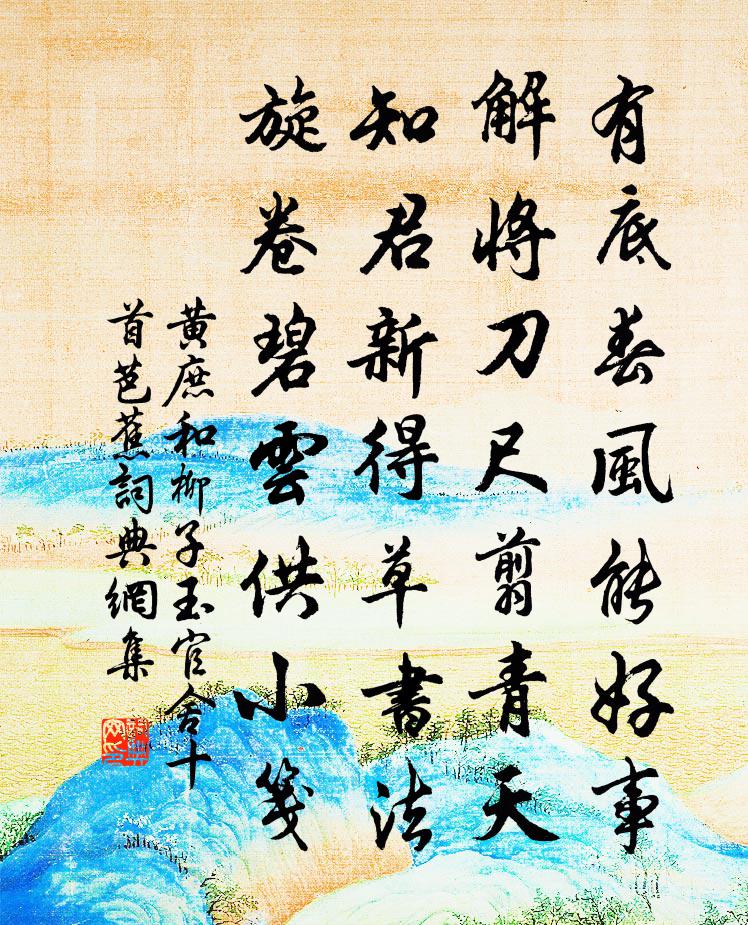 有底春風能好事
解將刀尺翦青天
知君新得草書法
旋卷碧雲供小箋
黃庶和柳子玉官舍十
首芭蕉詞典網集